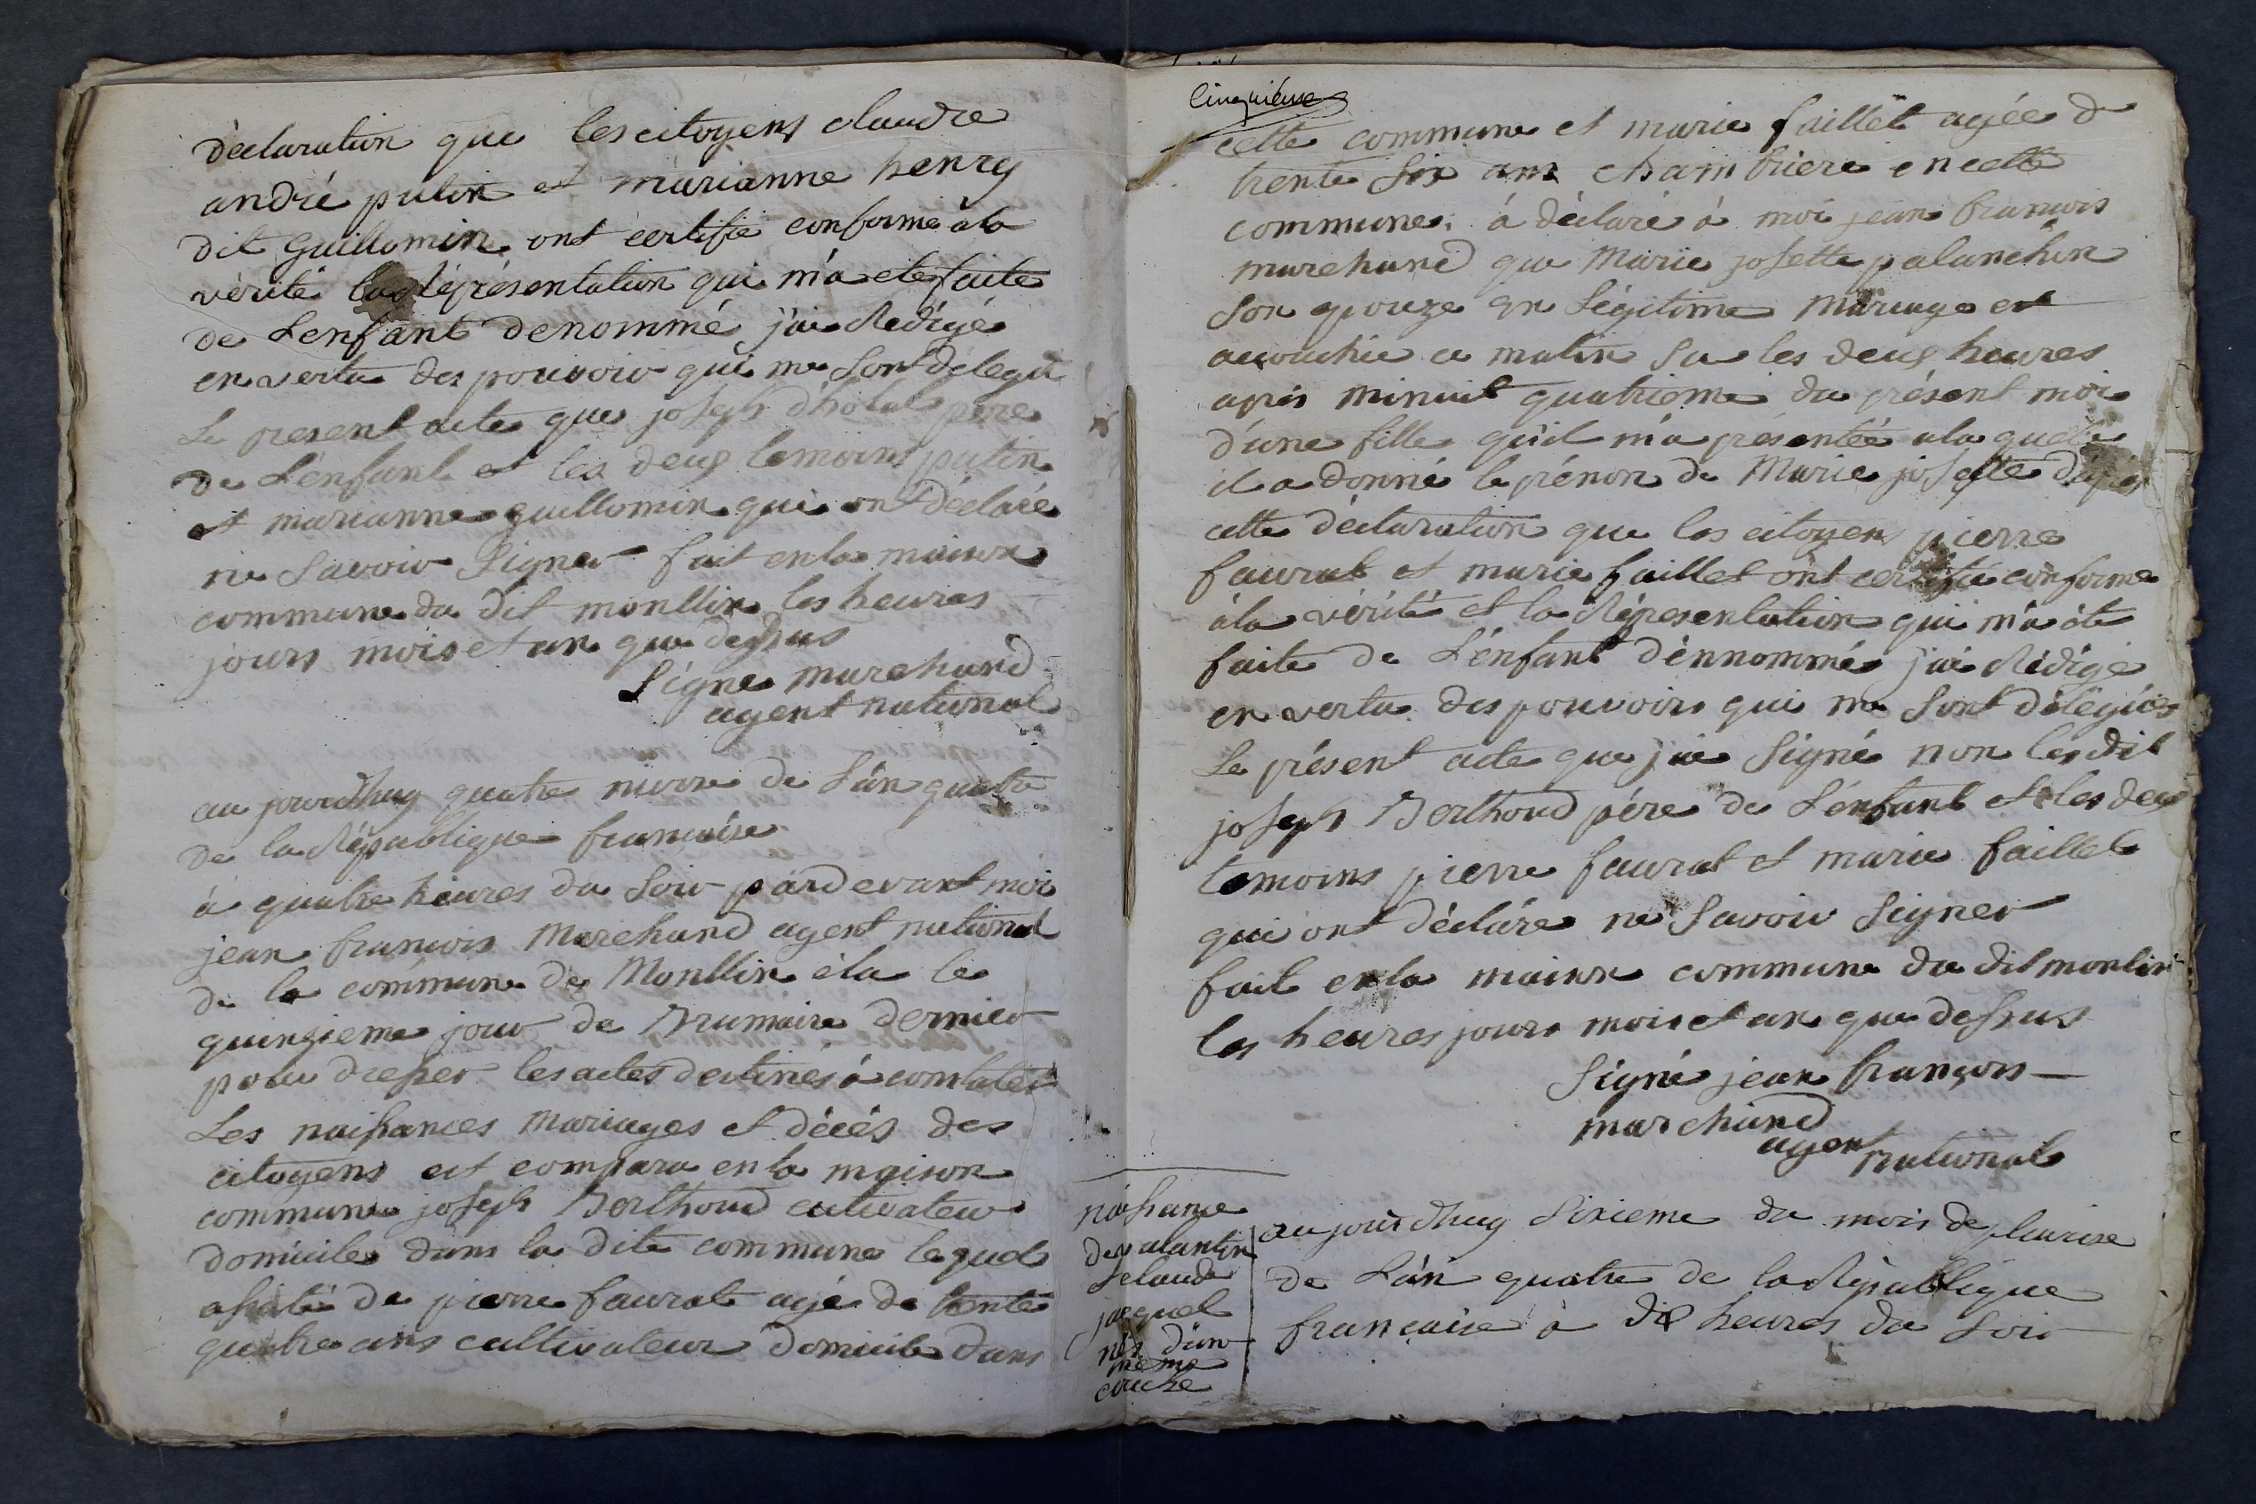 déclaration que les citoyens claudre
andré putin et marianne henry
dit Guillomin ont certifié conforme à la
vérité la Réprésentation qui m'a eté faite
de L'enfant denommé j'ai Redigé
en vertu des pouvoir qui me sont délegu
Le present acte que joseph dholal pere
de L'enfant et les deux temoins putin
et marianne guillomin qui ont déclaré
ne savoir signer fait en la maison
commune du dit monllin les heures
jours mois et an que dessus
signe marchand
agent national
au jourdhuy quatre nivore de L'an quatre
de la République francaise
à quatre heures du soir pardevant moi
jean francois Marchand agent national
de la commune de Monllin élu le
quinzieme jour de Brumaire dernier
pour dresser les actes destinés à constater
Les naissances mariages et décés des
citoyens est comparu en la maison
commune joseph Berthoud cutivateur
domicile dans la dite commune lequel
assisté de pierre faurat agé de trente
quatre ans cultivateur domicile dans
Cinquieme
cette commune et marie faillet agée de
trente six ans chambriere en cette
commune à déclaré à moi jean francois
marchand que Marie josette palanchin
son epouze en Légitime Mariage est
accouchée ce matin sur les deux heures
aprés minuit quatrieme du présent mois
d'une fille qu'il m'a présentée a la quelle
il a donné le prénon de Marie josette dapré
cette déclaration que les citoyens pierre
faurat et marie faillet ont certifié conforme
à la vérité et la Répresentation qui m'a été
faite de L'énfant dénnommé j'ai Rédigé
en vertu des pouvoirs qui me sont délégués
Le présent acte que j'ai signé non les dit
joseph Berthoud pére de L'énfant et les deux
temoins pierre faurat et marie faillet
qui ont déclare ne savoir signer
fait en la maison commune du dit monlin
les heures jours mois et an que dessus
signé jean françois
marchand
agent national
naissance
de valantin
et claude
jacquel
nés d'une
meme
couche
au jourdhuy sixieme du mois de pluvise
de L'an quatre de la République
française à dix heures du soir